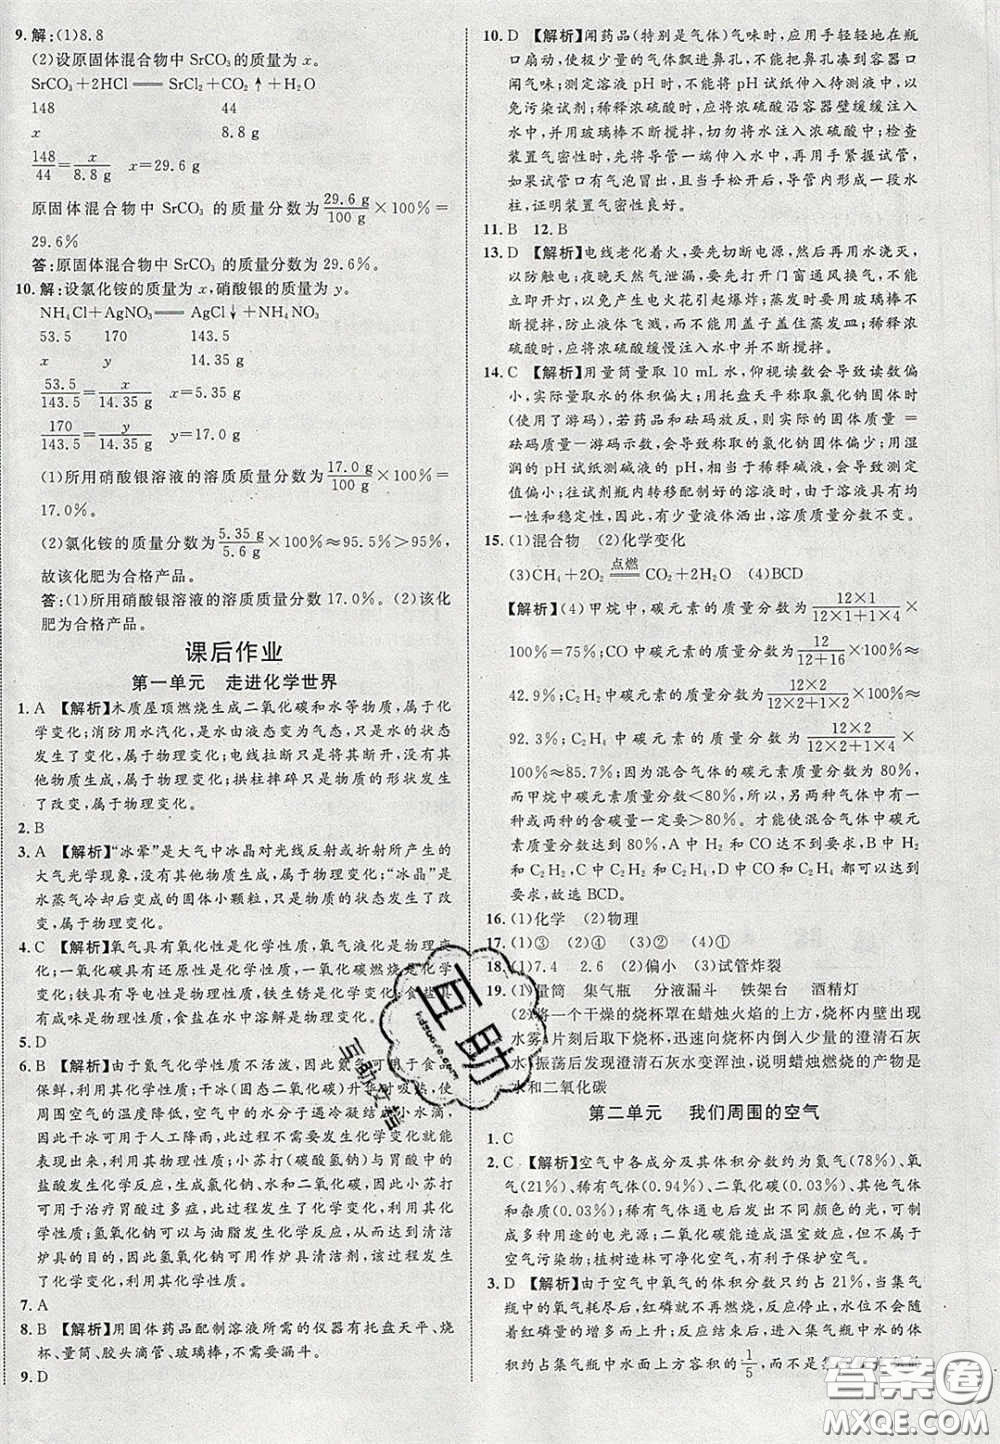 9. 解:(1)8.8
(2)设原固体混合物中 SrCO₃ 的质量为 x。
SrCO₃＋2HCl══SrCl₂＋CO₂↑＋H₂O
148 44
x 8.8 g
148/44＝x/8.8 g x＝29.6 g
原固体混合物中 SrCO₃ 的质量分数为 29.6 g/100 g×100%＝
29.6%
答:原固体混合物中 SrCO₃ 的质量分数为29.6%。
10. 解:设氯化铵的质量为 x,硝酸银的质量为 y。
NH₄Cl＋AgNO₃══AgCl↓＋NH₄NO₃
53.5 170 143.5
x y 14.35 g
53.5/143.5＝x/14.35 g x＝5.35 g
170/143.5＝y/14.35 g y＝17.0 g
(1)所用硝酸银溶液的溶质质量分数为 17.0 g/100 g×100%＝
17.0%。
(2)氯化铵的质量分数为 5.35 g/5.6 g×100%≈95.5%＞95%,
故该化肥为合格产品。
答:(1)所用硝酸银溶液的溶质质量分数17.0%。(2)该化
肥为合格产品。
课后作业
第一单元 走进化学世界
1. A 【解析】木质屋顶燃烧生成二氧化碳和水等物质,属于化
学变化;消防用水汽化,是水由液态变为气态,只是水的状态
发生了变化,属于物理变化;电线拉断只是将其断开,没有其
他物质生成,属于物理变化;拱柱摔碎只是物质的形状发生
了改变,属于物理变化。
2. B
3. A 【解析】“冰晕”是大气中冰晶对光线反射或折射所产生的
大气光学现象,没有其他物质生成,属于物理变化。“冰晶”是
水蒸气冷却后变成的固体小颗粒,只是水的状态发生了变
化,属于物理变化。
4. C 【解析】氧气具有氧化性是化学性质,氧气液化是物理变
化;一氧化碳具有还原性是化学性质,一氧化碳燃烧是化学
变化;铁具有导电性是物理性质,铁生锈是化学变化;食盐具
有咸味是物理性质,食盐在水中溶解是物理变化。
5. D
6. B 【解析】由于氮气化学性质不活泼,因此氮气可用于食品
保鲜,利用其化学性质;干冰(固态二氧化碳)升华时吸热,使
周围空气的温度降低,空气中的水分子遇冷凝结成小水滴,
因此干冰可用于人工降雨,由于没有发生化学变化,因此
利用其物理性质;小苏打(碳酸氢钠)与胃液中的
盐酸发生反应,生成氯化钠、水和二氧化碳,因此小苏打
可用于治疗胃酸过多症,由于发生了化学变化,利用其化
学性质;氢氧化钠可以与油脂发生化学反应,从而达到清洁
炉具的目的,因此氢氧化钠可用作炉具清洁剂,该过程发生
了化学变化,利用其化学性质。
7. A
8. B 【解析】用固体药品配制溶液所需的仪器有托盘天平、烧
杯、量筒、胶头滴管、玻璃棒,不需要漏斗。
9. D
10. D 【解析】闻药品(特别是气体)气味时,应用手轻轻地在瓶
口扇动,使极少量的气体飘进鼻孔,不能把鼻孔凑到容器口
闻气味;测溶液 pH 时,不能把 pH 试纸伸入待测液中,以
免污染试剂;稀释浓硫酸时,应将浓硫酸沿容器壁缓缓注入
水中,并用玻璃棒不断搅拌,切不可将水注入浓硫酸中;检查
装置气密性时,先将导管一端伸入水中,再用手紧握试管,
如果试管口有气泡冒出,且当手松开后,导管内形成一段水
柱,证明装置气密性良好。
11. B 12. B
13. D 【解析】电线老化着火,要先切断电源,然后再用水浇灭,
以防触电;夜晚天然气泄漏,要先打开门窗通风换气,不能
立即开灯,以免产生电火花引起爆炸;蒸发时要用玻璃棒不
断搅拌,以免液体飞溅,而不能用盖子盖住蒸发皿;稀释浓
硫酸时,应将浓硫酸缓慢注入水中并不断搅拌。
14. C 【解析】用量筒量取 10 mL 水,仰视读数会导致读数偏
小,实际量取水的体积偏大;用托盘天平称取氯化钠固体时
(使用了游码),若药品和砝码放反,则固体质量＝
砝码质量－游码示数,会导致称取的氯化钠固体偏少;用湿
润的 pH 试纸测碱液的 pH,相当于稀释碱液,会导致测定
值偏小;往试剂瓶内转移配制好的溶液时,由于溶液具有均
一性和稳定性,因此,有少量液体洒出,溶质质量分数不变。
15. (1)混合物 (2)化学变化
(3)CH₄＋2O₂ 点燃══ CO₂＋2H₂O (4)BCD
【解析】(4)甲烷中,碳元素的质量分数为 12×1/(12×1＋1×4)×
100%＝75%;CO 中,碳元素的质量分数为 12/(12＋16)×100%
≈42.9%;C₂H₂ 中,碳元素的质量分数为 12×2/(12×2＋1×2)×100%≈
92.3%;C₂H₄ 中,碳元素的质量分数为 12×2/(12×2＋1×4)×
100%≈85.7%;因为混合气体的碳元素质量分数为80%,
而甲烷中碳元素的质量分数＜80%,所以,另两种气体中有
一种或两种的含碳量一定要＞80%。才能使混合气体中碳元
素质量分数达到 80%,A 中 H₂ 和 CO 都＜80%;B 中 C₂H₂
和 C₂H₄、C 中 C₂H₂ 和 H₂、D 中 CO 和 C₂H₄,都可以达到
要求,故选 BCD。
16. (1)化学 (2)物理
17. (1)③ (2)④ (3)② (4)①
18. (1)7.4 2.6 (2)偏小 (3)试管炸裂
19. (1)量筒 集气瓶 分液漏斗 铁架台 酒精灯
(2)将一个干燥的烧杯罩在蜡烛火焰的上方,烧杯内壁出现
水雾,片刻后取下烧杯,迅速向烧杯内倒入少量的澄清石灰
水,振荡后发现澄清石灰水变浑浊,说明蜡烛燃烧的产物是
水和二氧化碳
第二单元 我们周围的空气
1. C
2. C 【解析】空气中各成分及其体积分数约为氮气(78%)、氧
气(21%)、稀有气体(0.94%)、二氧化碳(0.03%)、其他气体
和杂质(0.03%);稀有气体通电时发出不同颜色的光,可制成
多种用途的电光源;二氧化碳能造成温室效应,但不属于
空气污染物;植树造林可净化空气,有利于保护空气。
3. D 【解析】由于空气中氧气的体积分数只约占21%,当集气
瓶中的氧气耗尽后,红磷就不再燃烧,反应停止,水位不会
随红磷量的增加而不断上升;实验最终进入集气瓶中水的体
积约占集气瓶中水面上方容积的 1/5,而不是
互助
互助文档
hdzuoye.com
答案圈
MXQE.COM